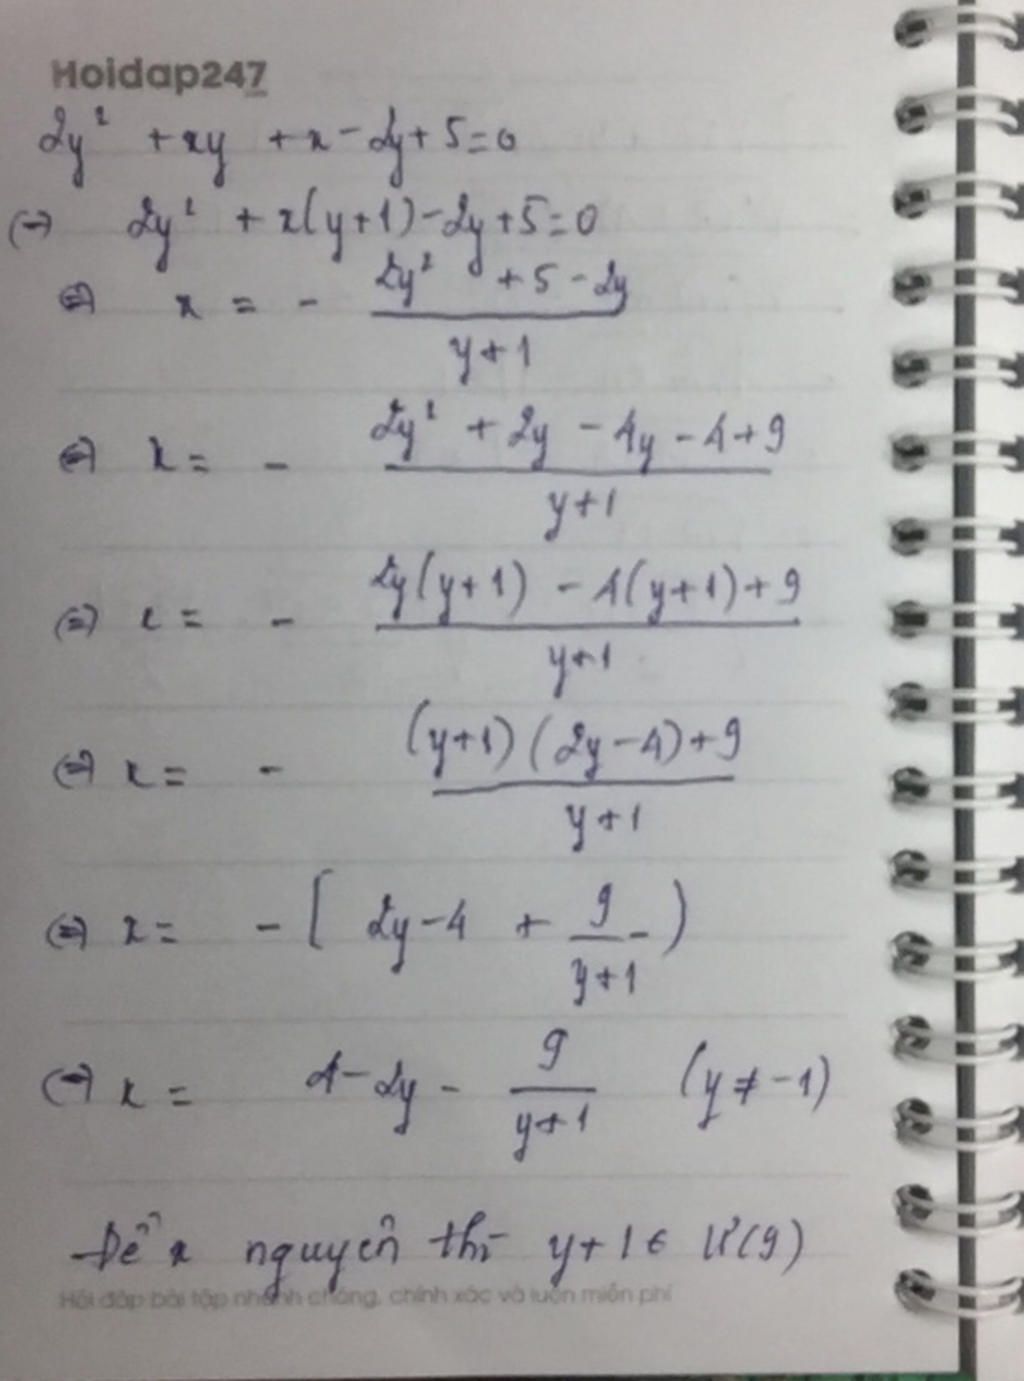 Hoidap247
2y² + xy + x - 2y + 5 = 0
(=) 2y² + x(y+1) - 2y + 5 = 0
(=) x = - (2y² + 5 - 2y)/(y + 1)
(=) x = - (2y² + 2y - 4y - 4 + 9)/(y + 1)
(=) x = - (2y(y+1) - 4(y+1) + 9)/(y+1)
(=) x = - ((y+1)(2y-4)+9)/(y+1)
(=) x = - [ 2y-4 + 9/(y+1) )
(=) x = 4-2y - 9/(y+1) (y ≠ -1)
Để x nguyên thì y+1 ∈ Ư(9)
Hỏi đáp bài tập nhanh chóng, chính xác và luôn miễn phí